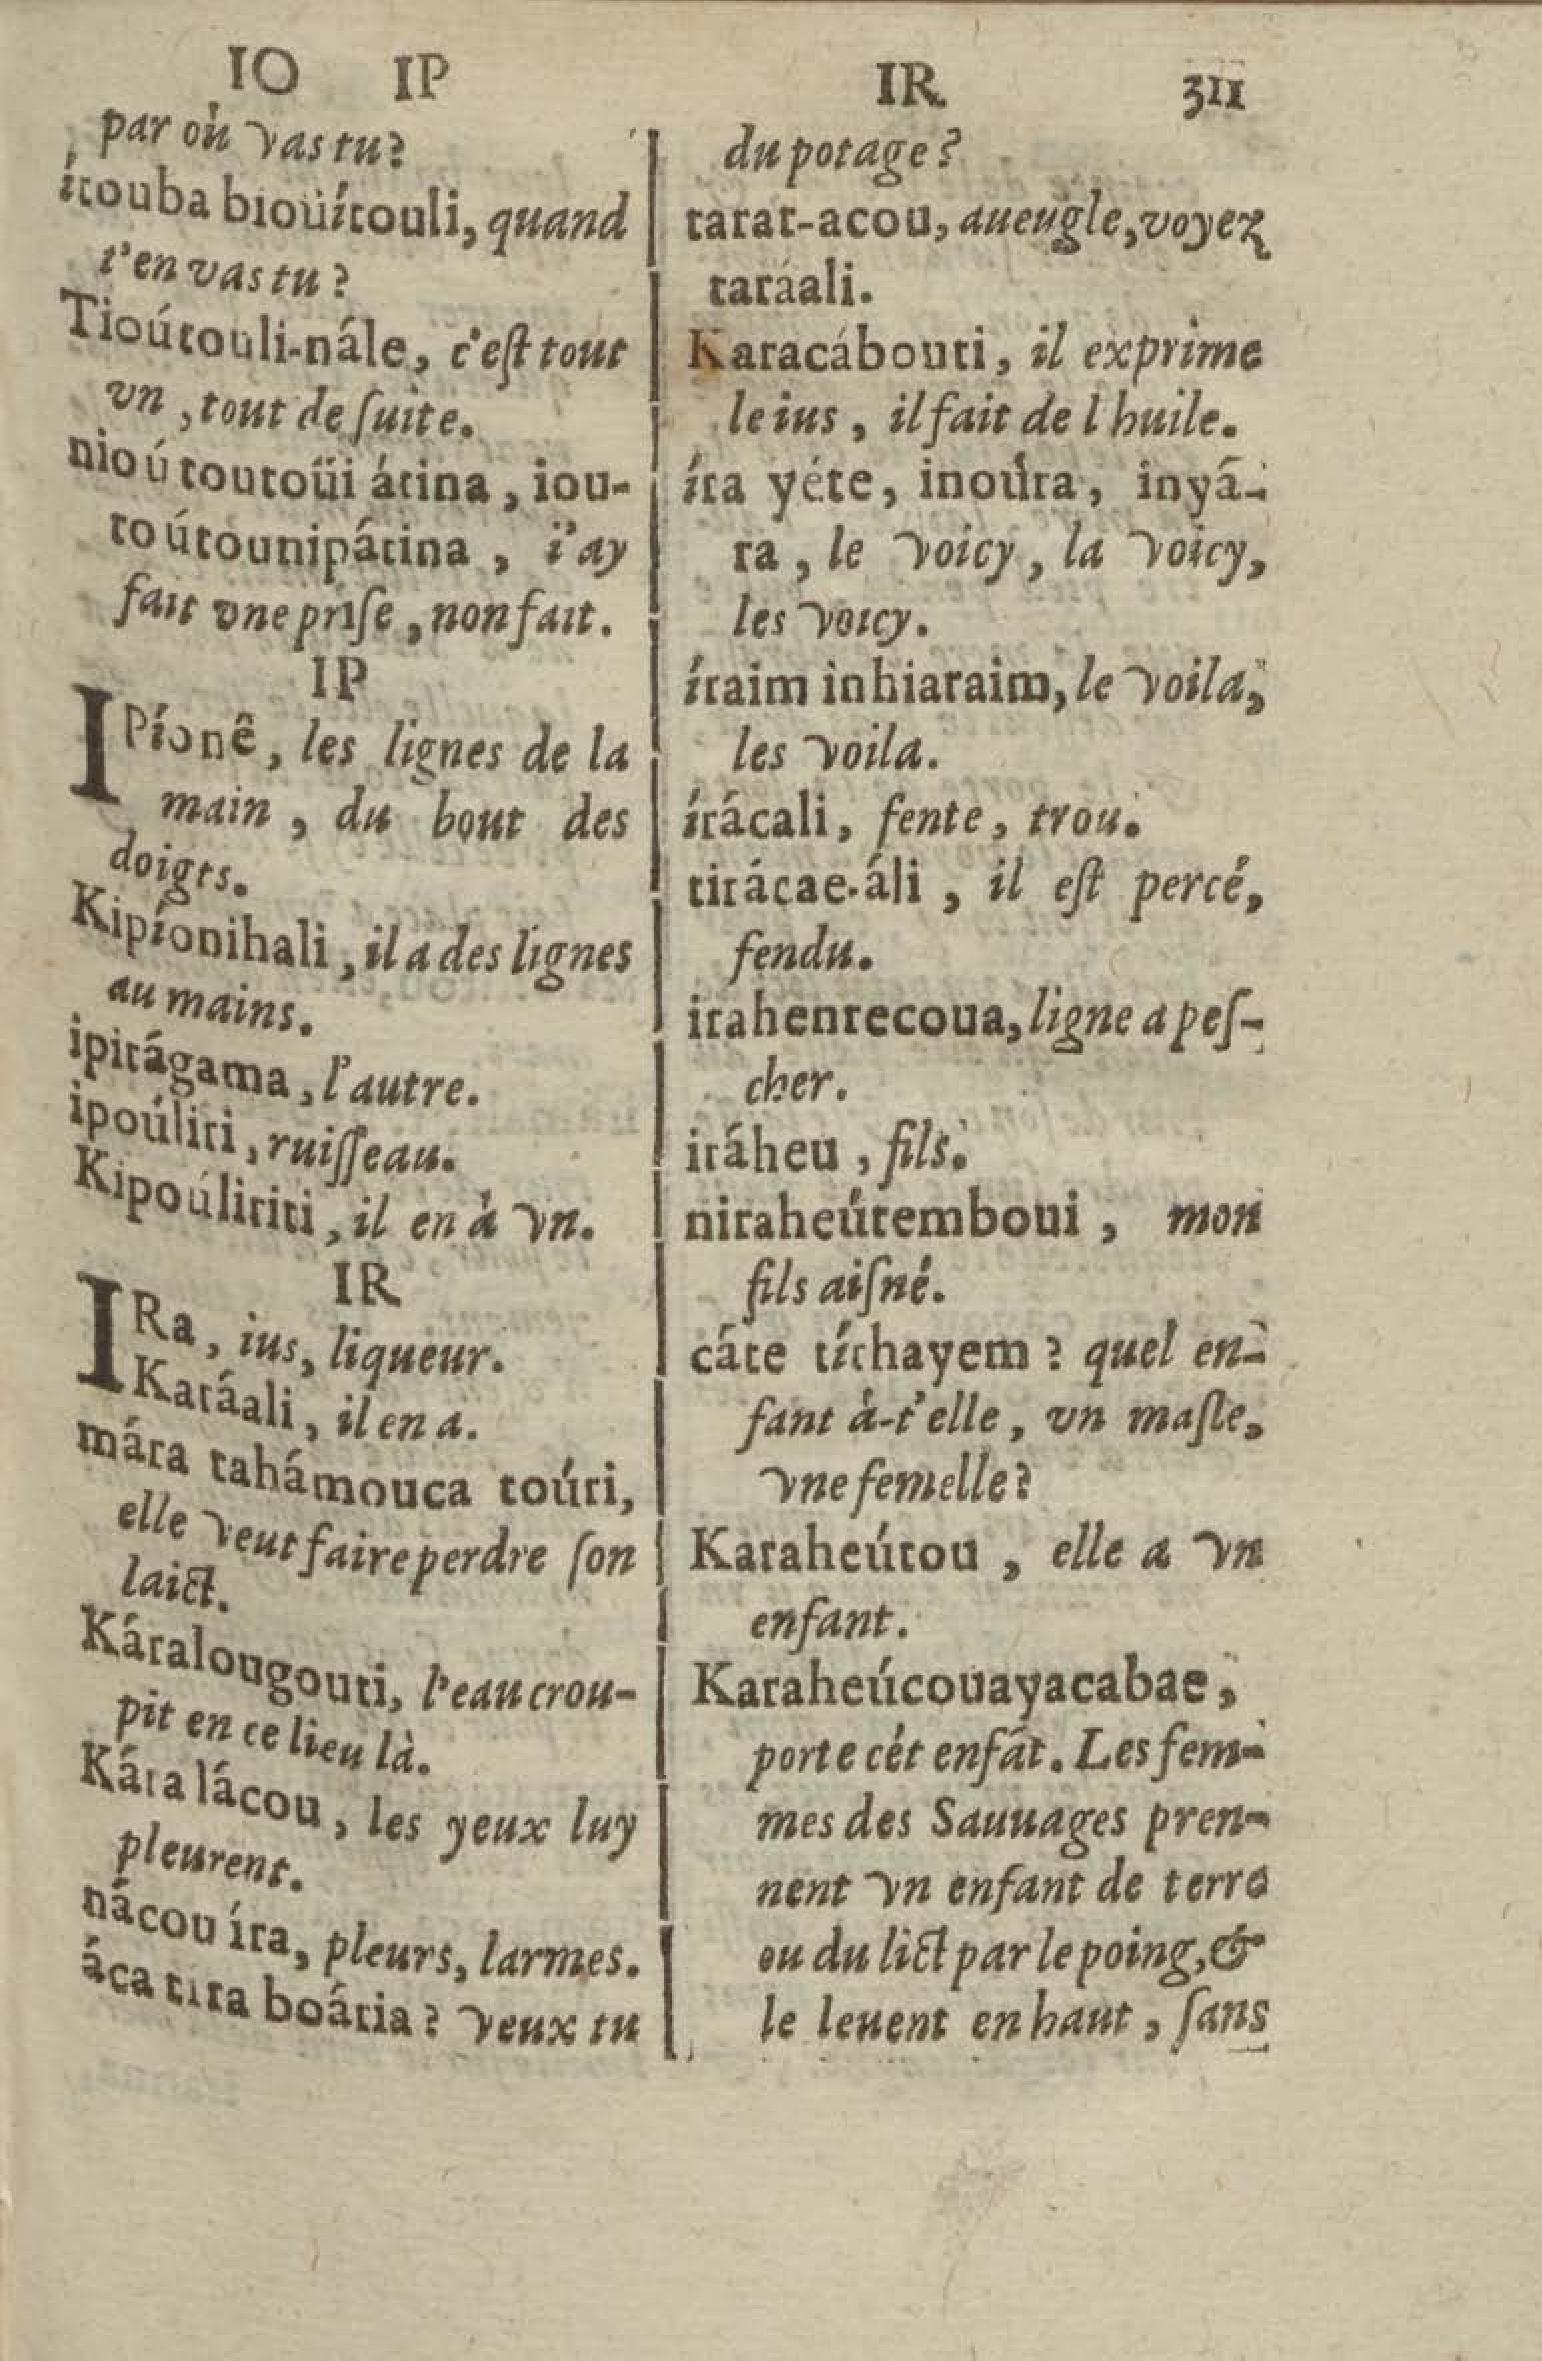 IO IP
par où vas tu?
ítouba bioüítouli, quand
t'en vas tu?
Tioútouli-nále, c'eſt tout
vn, tout de ſuite.
nioútoutoüi átina, iou-
toútounipátina, i'ay
fait vne priſe, non fait.
IP
IPíonê, les lignes de la
main, du bout des
doigts.
Kipíonihali, il a des lignes
au mains.
ipitágama, l'autre.
ipoúliri, ruiſſeau.
Kipoúliriti, il en à vn.
IR
IRa, ius, liqueur.
Karáali, il en a.
mára tahámouca toúri,
elle veut faire perdre ſon
laict.
Káralougouti, l'eau crou-
pit en ce lieu là.
Kára lácou, les yeux luy
pleurent.
nácou íra, pleurs, larmes.
áca tira boátia? veux tu
IR 311
du potage?
tarat-acou, aueugle, voyez
taráali.
Karacábouti, il exprime
le ius, il fait de l huile.
íra yéte, inoúra, inyá-
ra, le voicy, la voicy,
les voicy.
íraim ìnhiaraim, le voila,
les voila.
írácali, fente, trou.
tirácae-áli, il eſt percé,
fendu.
irahenrecoua, ligne a peſ-
cher.
iráheu, fils.
niraheútemboui, mon
fils aiſné.
cáte tíchayem? quel en-
fant à-t'elle, vn maſle,
vne femelle?
Karaheútou, elle a vn
enfant.
Karaheúcouayacabae,
porte cét enfát. Les fem-
mes des Sauuages pren-
nent vn enfant de terre
ou du lict par le poing, &
le leuent en haut, ſans